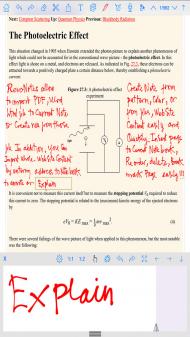 1982
Next: Compton Scattering Up: Quantum Physics Previous: Blackbody Radiation
The Photoelectric Effect
This situation changed in 1905 when Einstein extended the photon picture to explain another phenomenon of
light which could not be accounted for in the conventional wave picture - the photoelectric effect. In this
effect light is shone on a metal, and electrons are released, as indicated in Fig. 27.3; these electrons can be
attracted towards a positively charged plate a certain distance below, thereby establishing a photoelectric
current.
Figure 27.3: A photoelectric effect
experiment
to convert PDF, Word
html file to Current Note
or Create new from these
file. In addition, you can
Input whole Website Content
by entering address to Note book
to annote or Explain
Create Note from
pattern, Color, or
from files, Website
Content easily and
Quickly, Intend page
to Current Note book,
Re order, delete, book
mark Page easily !!!
It is convenient not to measure this current itself but to measure the stopping potential V₀ required to reduce
this current to zero. The stopping potential is related to the (maximum) kinetic energy of the ejected electrons
by
eV₀ = KE max = ½ mv² max
There were several failings of the wave picture of light when applied to this phenomenon, but the most notable
was the following:
X 1:1 1:2
Explain